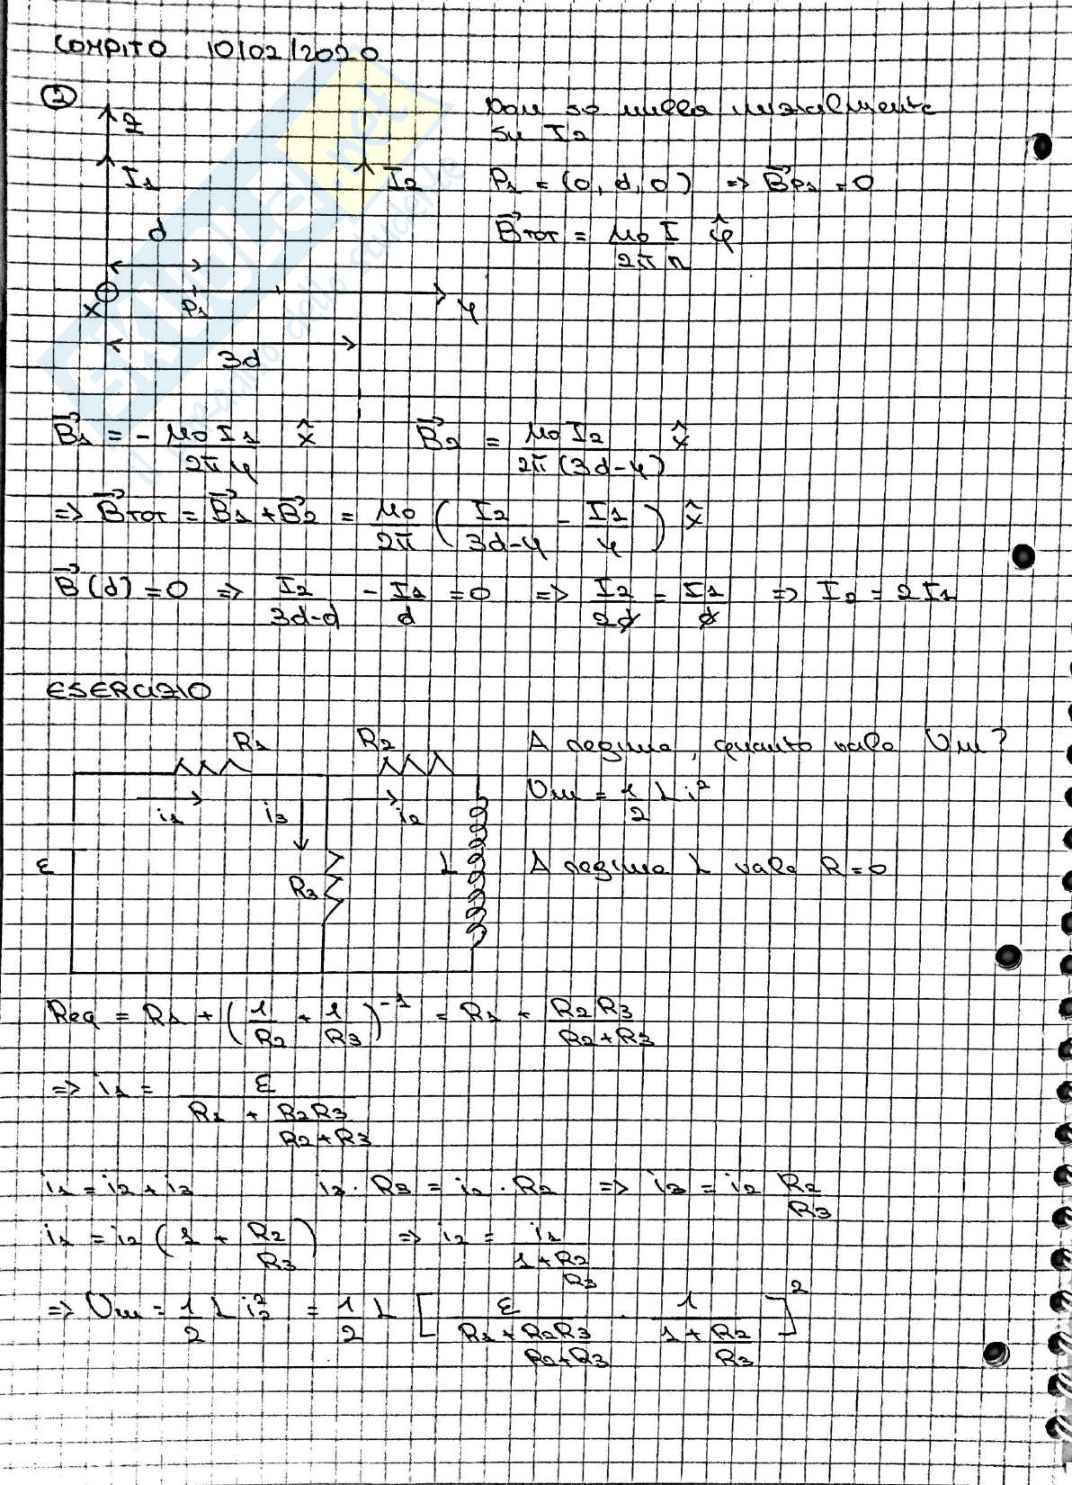 COMPITO 10/02/2020
②
z
I₁
I₂
d
x
P₁
y
3d
su I₂
P₁ = (0, d, 0) => B⃗P₁ = 0
B⃗TOT = μ₀ I / 2π r φ̂
B⃗₁ = - μ₀ I₁ / 2π y x̂    B⃗₂ = μ₀ I₂ / 2π (3d-y) x̂
=> B⃗TOT = B⃗₁ + B⃗₂ = μ₀ / 2π ( I₂ / 3d-y - I₁ / y ) x̂
B⃗(d) = 0 => I₂ / 3d-d - I₁ / d = 0 => I₂ / 2d = I₁ / d => I₂ = 2I₁
ESERCIZIO
R₁
R₂
i₁
i₃
i₂
ε
R₃
L
A regime, quanto vale Um?
Um = 1/2 L i²
A regime L vale R=0
Req = R₁ + (1/R₂ + 1/R₃)⁻¹ = R₁ + R₂R₃ / R₂+R₃
=> i₁ = ε / (R₁ + R₂R₃ / R₂+R₃)
i₁ = i₂ + i₃    i₃ · R₃ = i₂ · R₂ => i₃ = i₂ R₂/R₃
i₁ = i₂ (1 + R₂/R₃) => i₂ = i₁ / (1 + R₂/R₃)
=> Um = 1/2 L i₂² = 1/2 L [ ε / (R₁ + R₂R₃ / R₂+R₃) · 1 / (1 + R₂/R₃) ]²